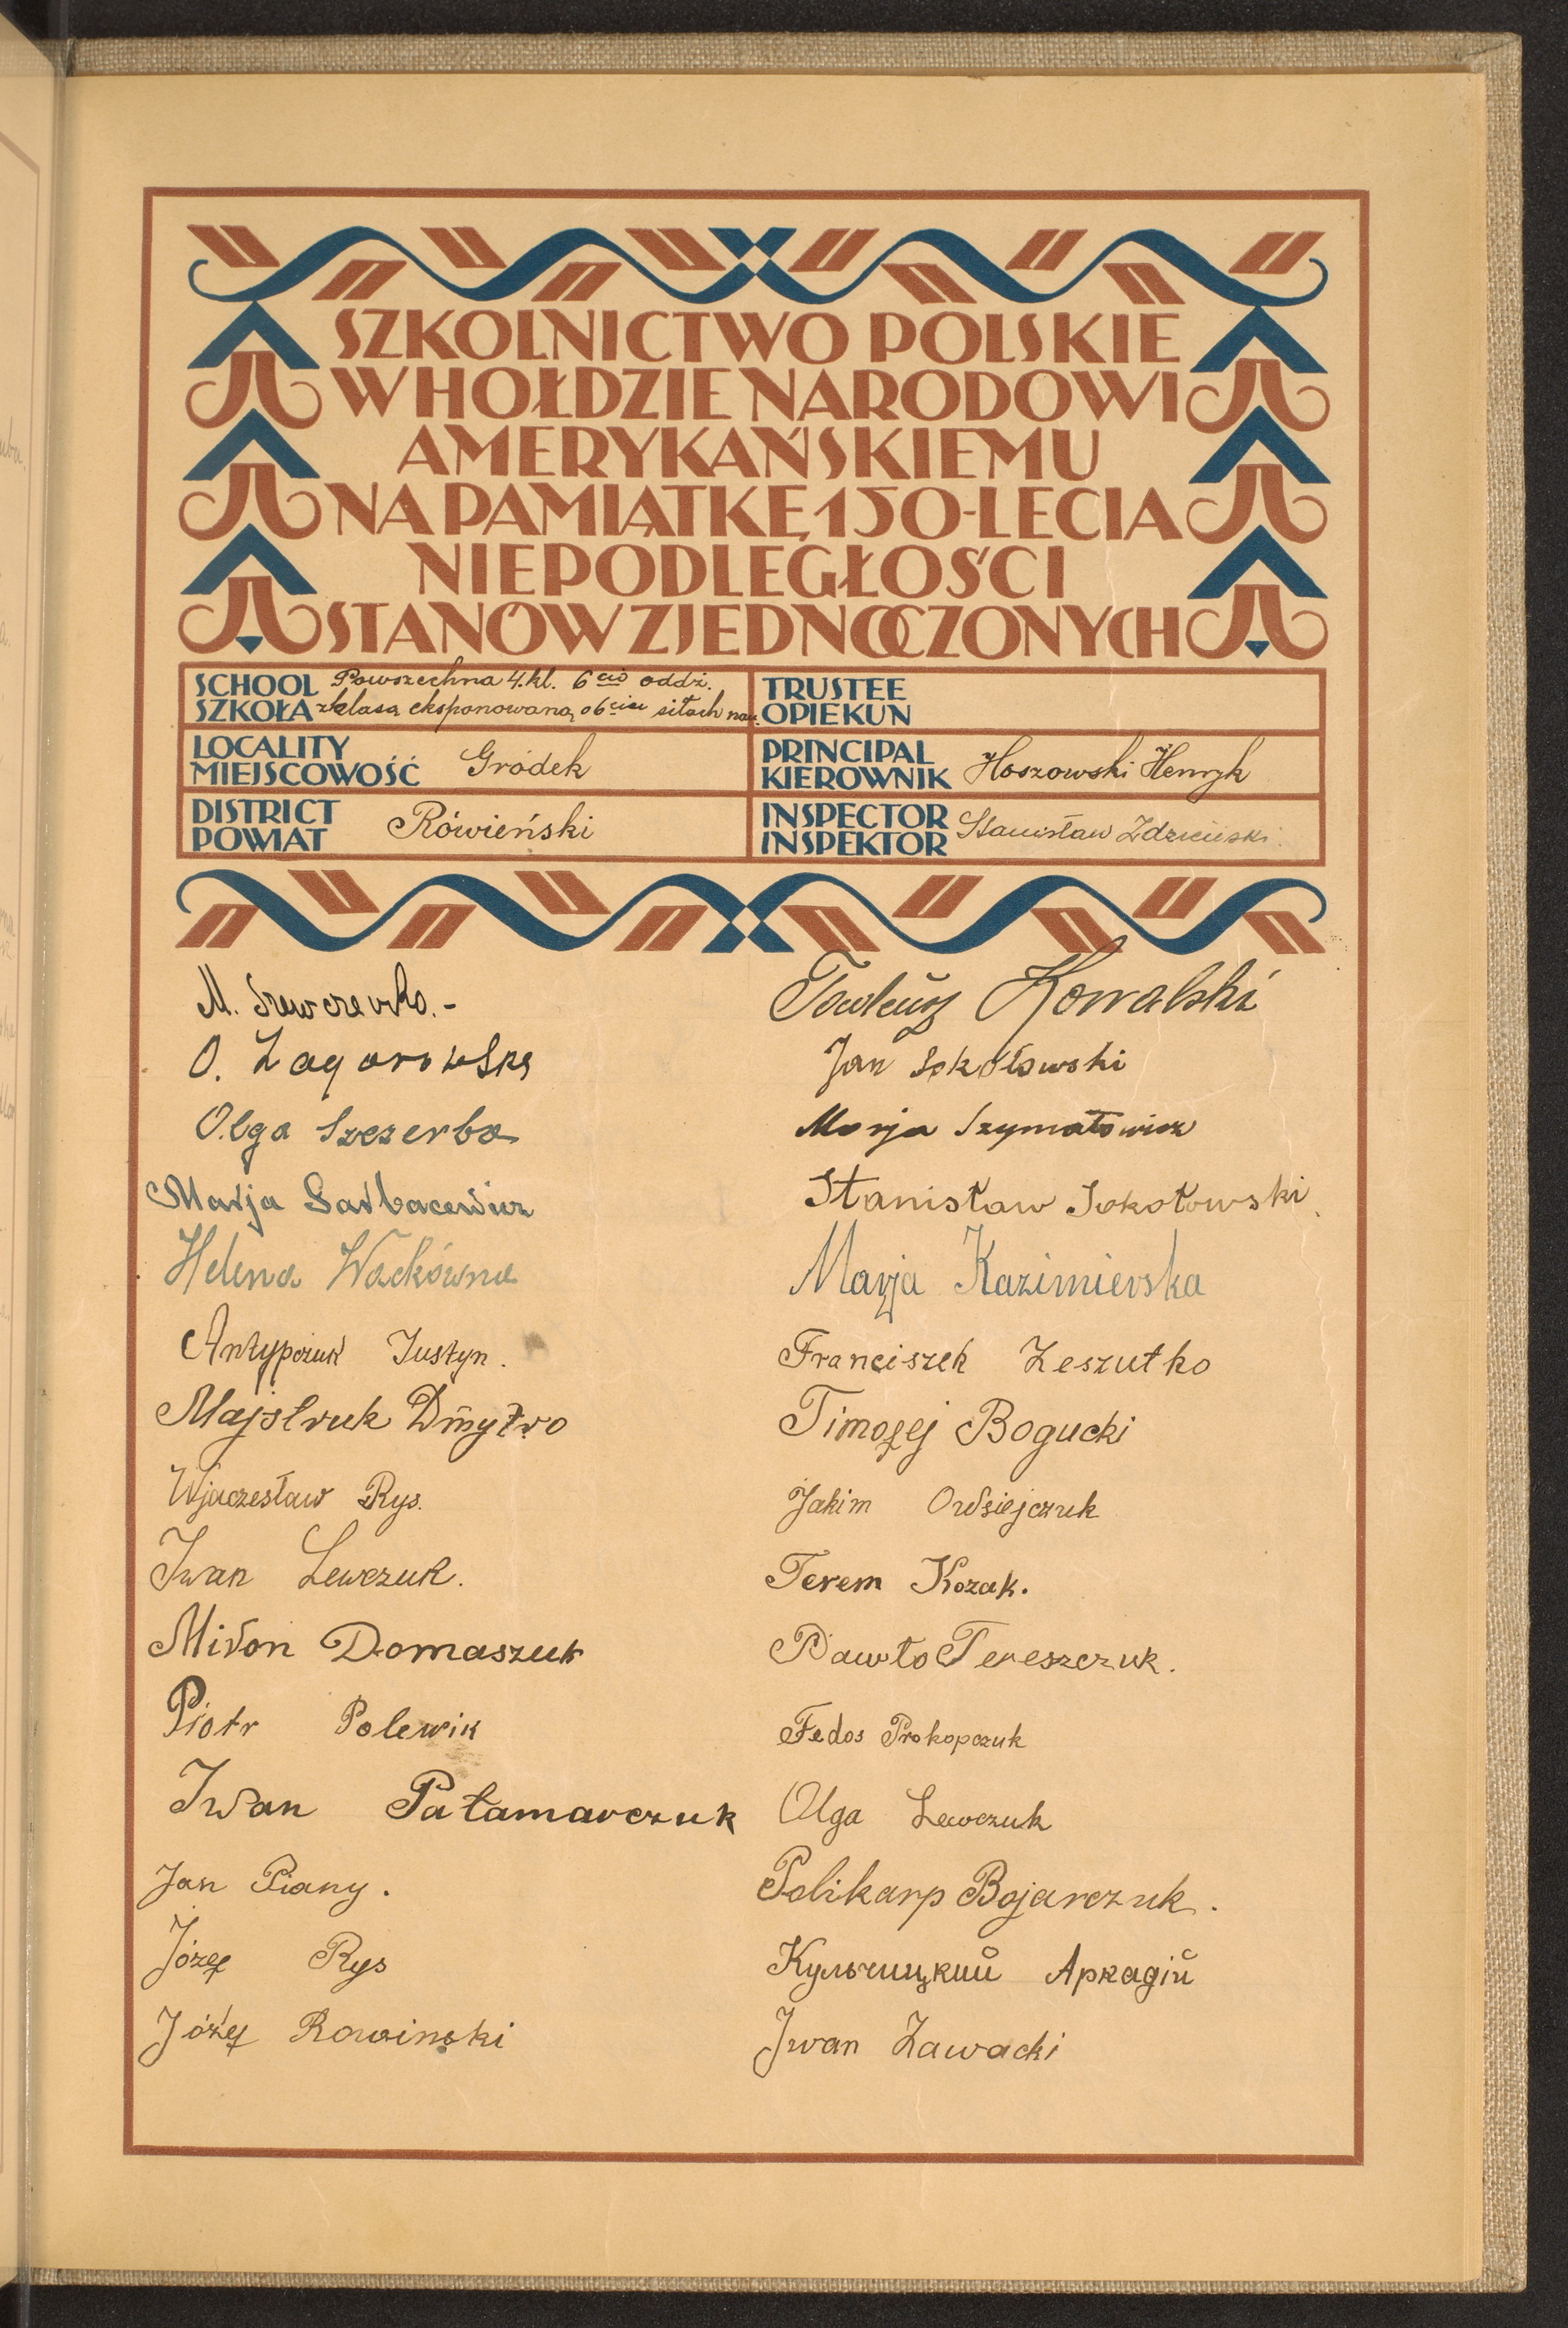 SZKOLNICTWO POLSKIE
W HOŁDZIE NARODOWI
AMERYKAŃSKIEMU
NA PAMIĄTKĘ 150-LECIA
NIEPODLEGŁOŚCI
STANÓW ZJEDNOCZONYCH
SCHOOL SZKOŁA Powszechna 4.kl. 6cio oddz.
z klasą eksponowaną o 6ciu siłach nau.
TRUSTEE OPIEKUN
LOCALITY MIEJSCOWOŚĆ Gródek
PRINCIPAL KIEROWNIK Hoszowski Henryk
DISTRICT POWIAT Rówieński
INSPECTOR INSPEKTOR Stanisław
M. Szewczenko.-
O. Zagorowska
Olga Szczerba
Marja Sarbacewicz
Helena Wackówna
Antypczuk Justyn.
Majstruk Dmytro
Wjaczesław Rys.
Iwan Lewczuk.
Miron Domaszuk
Piotr Polewik
Iwan Pałamarczuk
Jan Piany.
Józef Rys
Józef Rowinski
Tadeusz Kowalski
Jan Sokołowski
Marja Szymatowicz
Stanisław Sokołowski
Marja Kazimierska
Franciszek Zeszutko
Timofej Bogucki
Jakim Owsiejczuk
Terem Kozak.
Pawło Tereszczuk.
Fedos Prokopczuk
Olga Lewczuk
Polikarp Bojarczuk.
Кульчицкий Аркадій
Iwan Zawacki